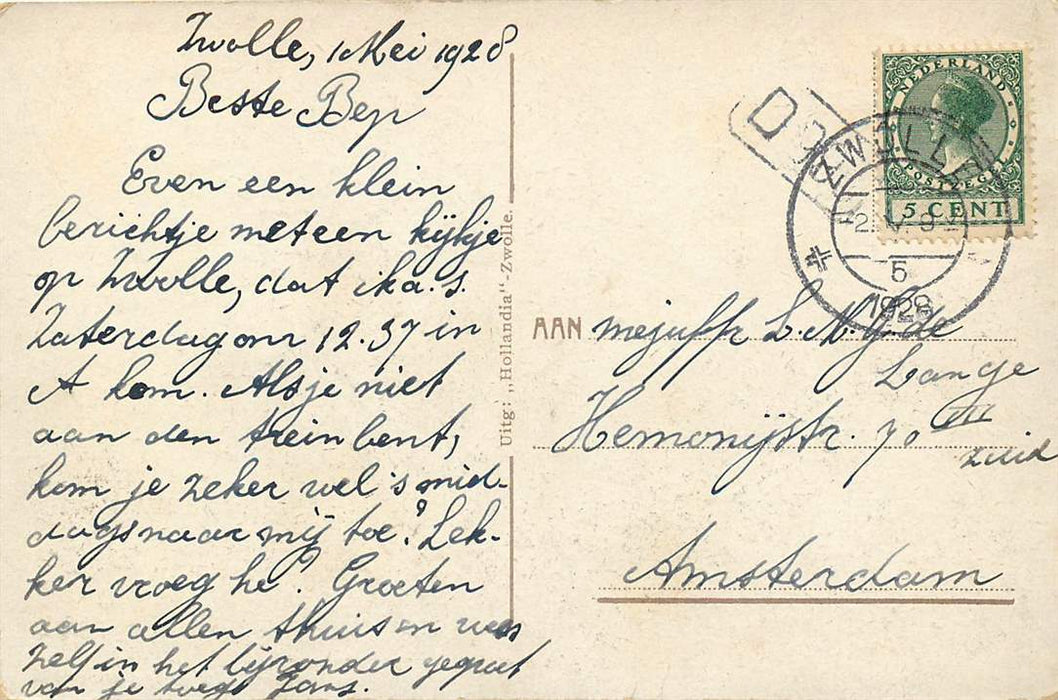 Zwolle, 1 Mei 1928
Beste Bep
Even een klein
berichtje met een kijkje
op Zwolle, dat ik a.s.
Zaterdag om 12.37 in
A kom. Als je niet
aan den trein bent,
kom je zeker wel 's mid-
dags naar mij toe? Lek-
ker vroeg hè? Groeten
aan allen thuis en wees
zelf in het bijzonder gegroet
van je Jans.
Uitg: „Hollandia"-Zwolle.
NEDERLAND
POSTZEGEL
5 CENT
D
ZWOLLE
5
1928
AAN mejuffr L. M. G. de
Lange
Hemonijstr. 70 III
Zuid
Amsterdam